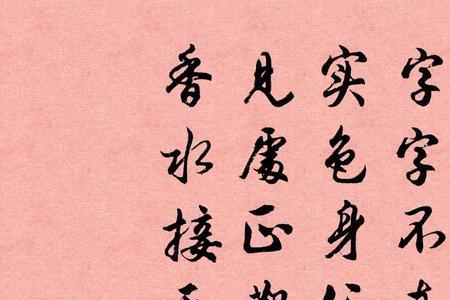 字字不
实色身
见處正
香水接